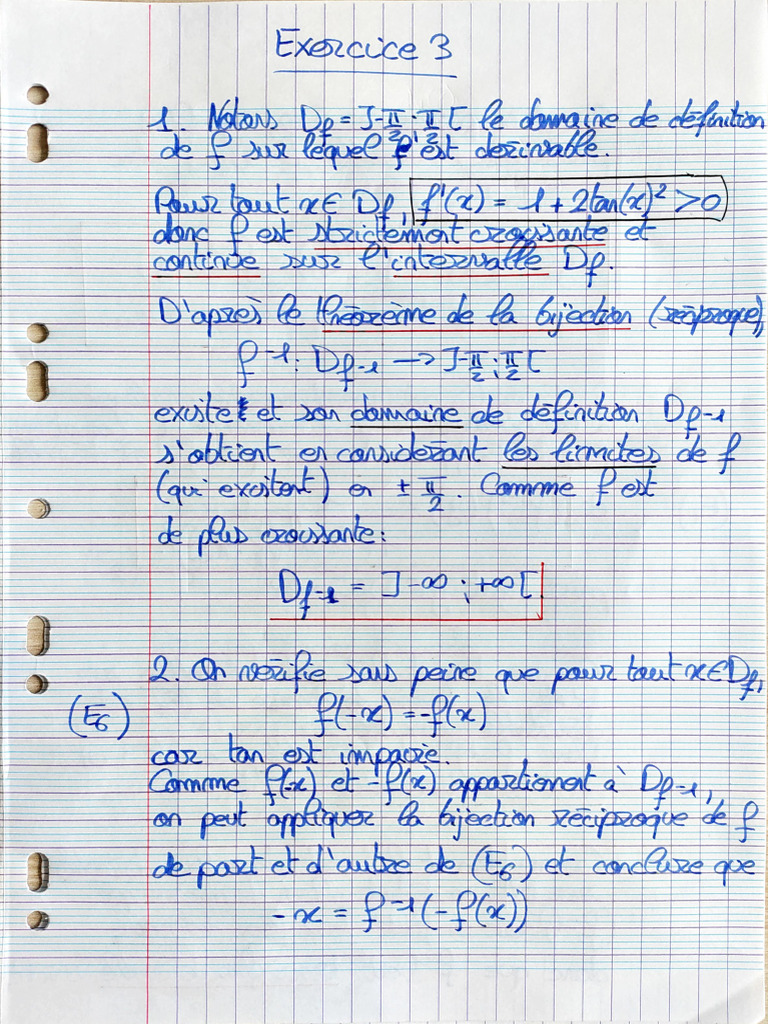 Exercice 3
1. Notons Df = ]-π/2 ; π/2[ le domaine de définition
de f sur lequel f est dérivable.
Pour tout x ∈ Df, f'(x) = 1 + 2tan(x)² > 0
donc f est strictement croissante et
continue sur l'intervalle Df.
D'après le théorème de la bijection (réciproque),
f⁻¹: Df⁻¹ → ]-π/2 ; π/2[
existe et son domaine de définition Df⁻¹
s'obtient en considérant les limites de f
(qui existent) en ± π/2. Comme f est
de plus croissante:
Df⁻¹ = ]-∞ ; +∞[
2. On vérifie sans peine que pour tout x ∈ Df,
(E6) f(-x) = -f(x)
car tan est impaire.
Comme f(-x) et -f(x) appartiennent à Df⁻¹,
on peut appliquer la bijection réciproque de f
de part et d'autre de (E6) et conclure que
-x = f⁻¹(-f(x))